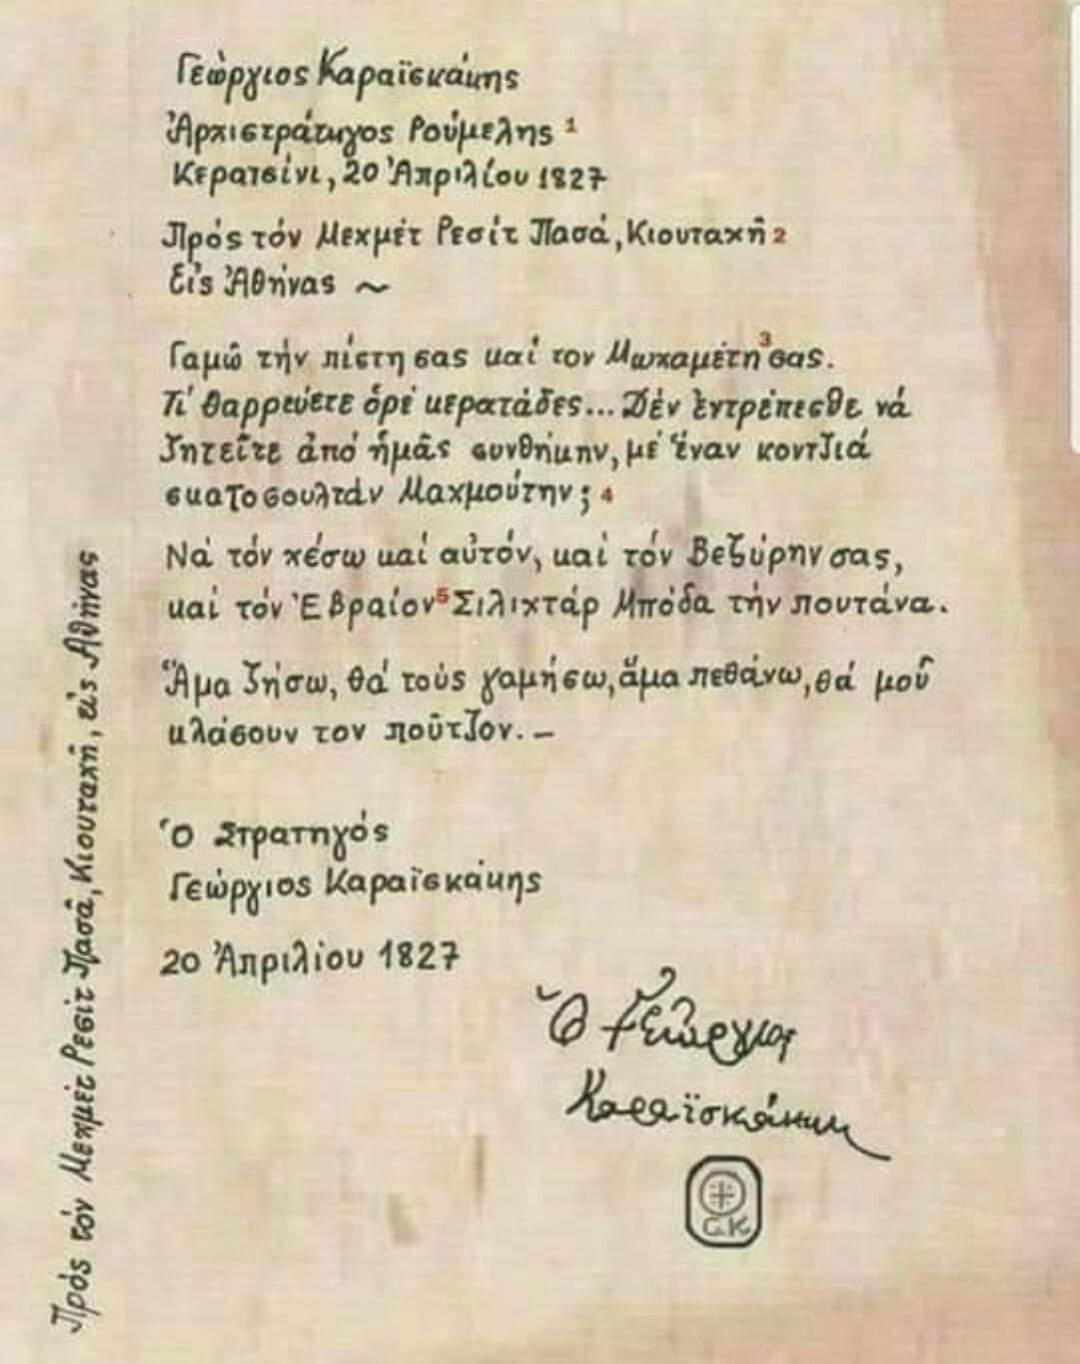 Γεώργιος Καραϊσκάκης
Ἀρχιστράτηγος Ρούμελης 1
Κερατσίνι, 20 Ἀπριλίου 1827
Πρός τόν Μεχμέτ Ρεσίτ Πασά, Κιουταχῆ 2
Εἰς Ἀθήνας ~
Γαμῶ τήν πίστη σας καί τον Μωχαμέτη 3 σας.
Τί θαρρεύετε ὁρέ κερατάδες... Δέν ἐντρέπεσθε νά
ζητεῖτε ἀπό ἡμᾶς συνθήκην, μέ ἕναν κοντζιά
σκατοσουλτάν Μαχμούτην; 4
Νά τόν χέσω καί αὐτόν, καί τόν Βεζύρην σας,
καί τόν Ἑβραίον 5 Σιλιχτάρ Μπόδα τήν πουτάνα.
Ἅμα ζήσω, θά τούς γαμήσω, ἅμα πεθάνω, θά μοῦ
κλάσουν τον ποῦτζον. –
Ὁ Στρατηγός
Γεώργιος Καραϊσκάκης
20 Ἀπριλίου 1827
Ὁ Γεώργιος
Καραϊσκάκης
G.K
Πρός τόν Μεχμέτ Ρεσίτ Πασᾶ, Κιουταχῆ, εἰς Ἀθήνας